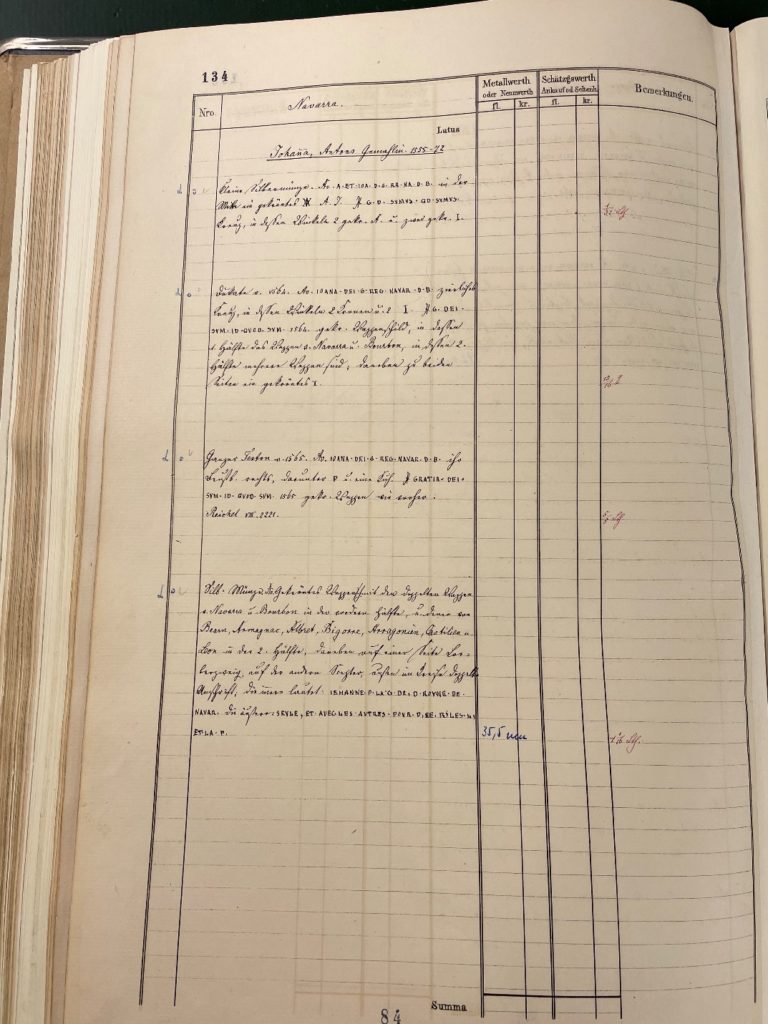 134
Nro
Navarra.
Metallwerth
oder Nennwerth
fl. kr.
Schätzgswerth
Ankauf od. Schenk.
fl. kr.
Bemerkungen.
Latus
Johanna, Antons Gemahlin. 1555-72
Kleine Silbermünze. Av. A·ET·IOA·D·G·RA·NA·D·B. in der
Mitte ein gekröntes
Kreuz, in dessen Winkeln 2 gekr. A. u. zwei gekr. I.
Dukate v. 1564. Av. IOANA·DEI·G·REG·NAVAR·D·B· zierliches
Kreuz, in dessen Winkeln 2 Kronen u. 2 I. G·DEI·
SVM·ID·QVOD·SVM·1564. gekr. Wappenschild, in dessen
1. Hälfte das Wappen v. Navarra u. Bourbon, in dessen 2.
Hälfte mehrere Wappen sind, daneben zu beiden
Seiten ein gekröntes I.
Ganzer Teston v. 1565. Av. IOANA·DEI·G·REG·NAVAR·D·B· ihr
Brustb. rechts, darunter P u. eine GRATIA·DEI·
SVM·ID·QVOD·SVM· 1565 gekr. Wappen wie vorher.
Reichel VII. 2221.
Silb. Münze. Gekröntes Wappenschild den doppelten Wappen
v. Navarra u. Bourbon in der vordern Hälfte, u. denen von
Bearn, Armagnac, Albret, Bigorre, Arragonien, Castilien u.
Leon in der 2. Hälfte, daneben auf einer Seite Lor-
berzweig, auf der andern Szepter, aussen im Kreise doppelte
Aufschrift, die innere lautet: IEHANNE·P·LA·G·DE·D·ROYNE·DE·
NAVAR. die äussere:
ET·LA·P.
35,5 mm
84
Summa